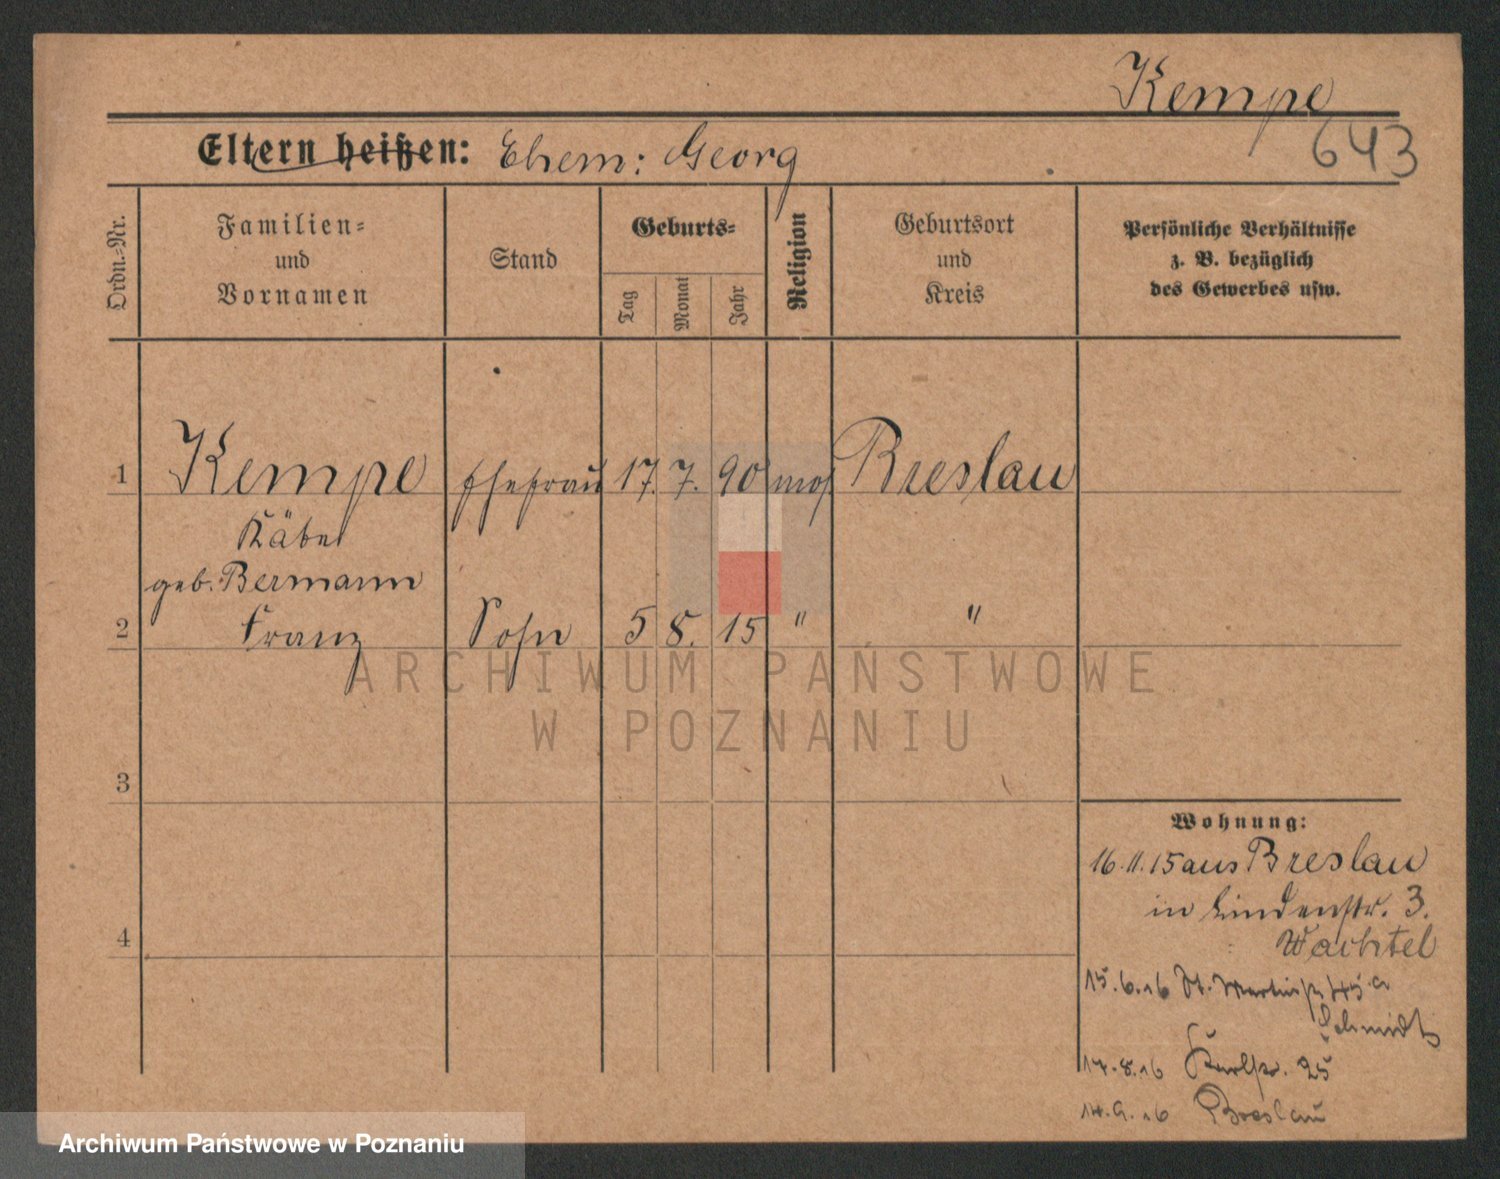 Kempe
643
Eltern heißen: Ehem: Georg
Ordn.-Nr.
Familien-
und
Vornamen
Stand
Geburts-
Tag
Monat
Jahr
Religion
Geburtsort
und
Kreis
Persönliche Verhältnisse
z. B. bezüglich
des Gewerbes usw.
1 Kempe Ehefrau 17. 7. 90 mos Breslau
Käbe
geb. Bermann
2 Franz Sohn 5 8. 15 " "
ARCHIWUM PAŃSTWOWE
W POZNANIU
3
4
Wohnung:
16.11.15 aus Breslau
in Lindenstr. 3.
Wachtel
15.6.16 St. Martinstr
Schmidt
17.8.16 Karlstr. 25
14.9.16 Breslau
Archiwum Państwowe w Poznaniu